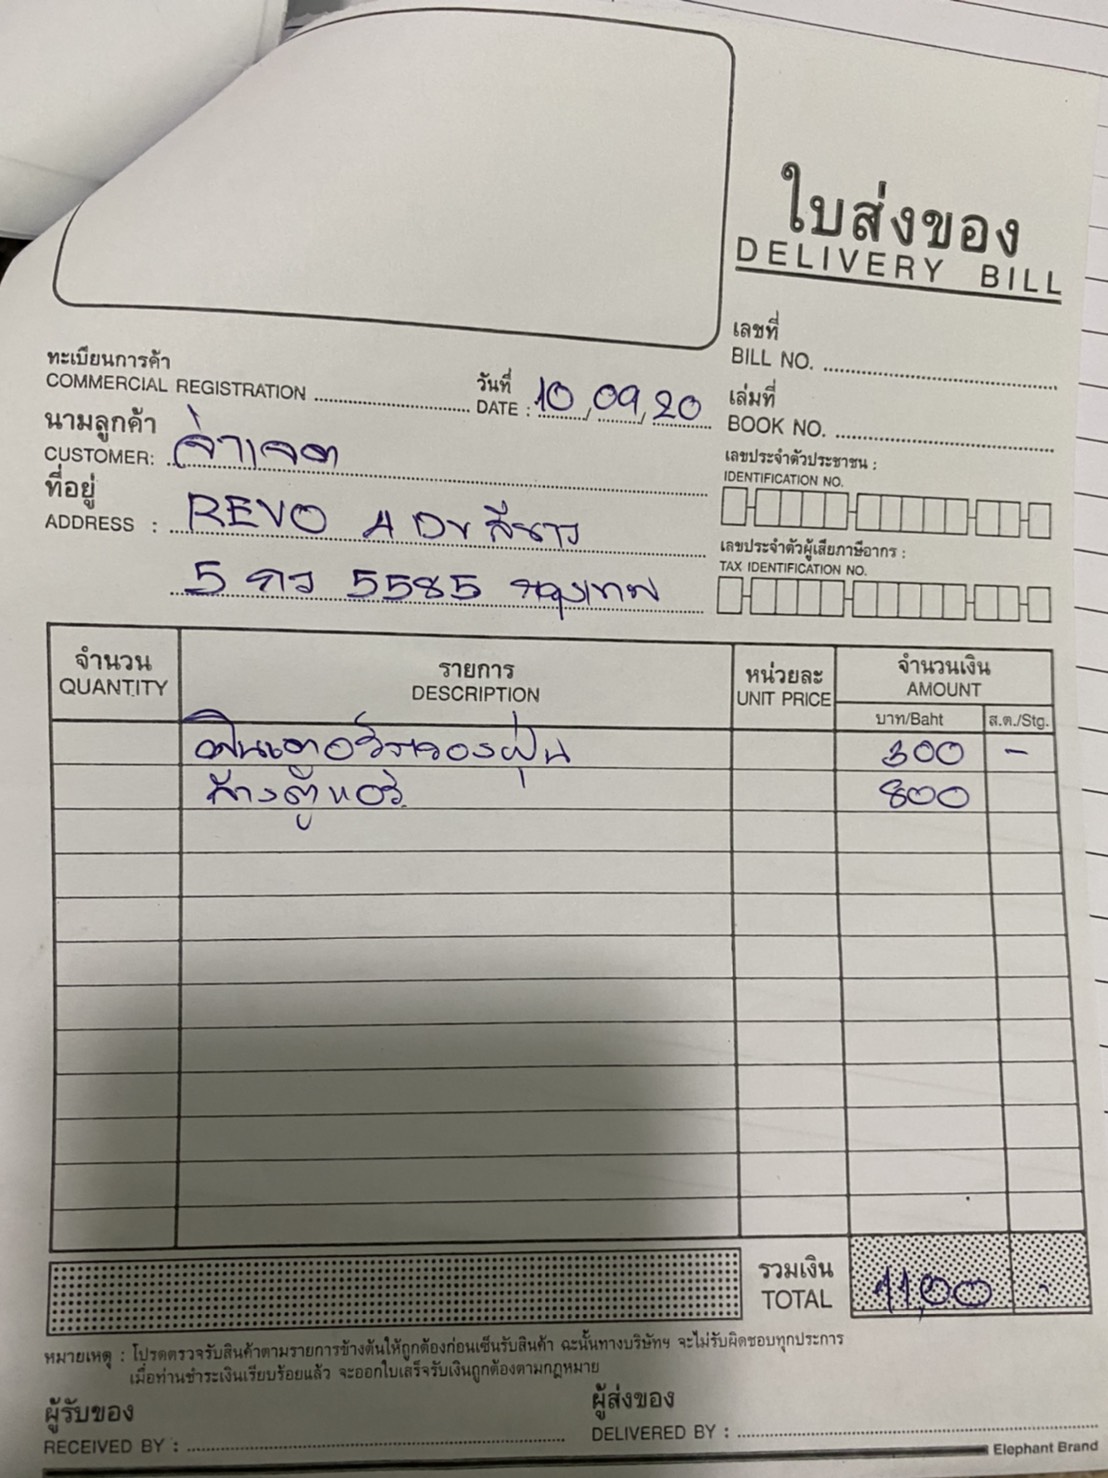 ใบส่งของ
DELIVERY BILL
เลขที่
BILL NO.
ทะเบียนการค้า
COMMERCIAL REGISTRATION
วันที่
DATE : 10/09/20
เล่มที่
BOOK NO.
นามลูกค้า
CUSTOMER: จ่าเจต
เลขประจำตัวประชาชน :
IDENTIFICATION NO.
ที่อยู่
ADDRESS : REVO 4 Dr สีขาว
เลขประจำตัวผู้เสียภาษีอากร :
TAX IDENTIFICATION NO.
5 กว 5585 กรุงเทพ
จำนวน รายการ หน่วยละ จำนวนเงิน
QUANTITY DESCRIPTION UNIT PRICE AMOUNT
บาท/Baht ส.ต./Stg.
ฟิลเตอร์กรองฝุ่น 300 -
ล้างตู้แอร์ 800
รวมเงิน
TOTAL 1,100 -
หมายเหตุ : โปรดตรวจรับสินค้าตามรายการข้างต้นให้ถูกต้องก่อนเซ็นรับสินค้า ฉะนั้นทางบริษัทฯ จะไม่รับผิดชอบทุกประการ
เมื่อท่านชำระเงินเรียบร้อยแล้ว จะออกใบเสร็จรับเงินถูกต้องตามกฎหมาย
ผู้รับของ
RECEIVED BY :
ผู้ส่งของ
DELIVERED BY :
Elephant Brand